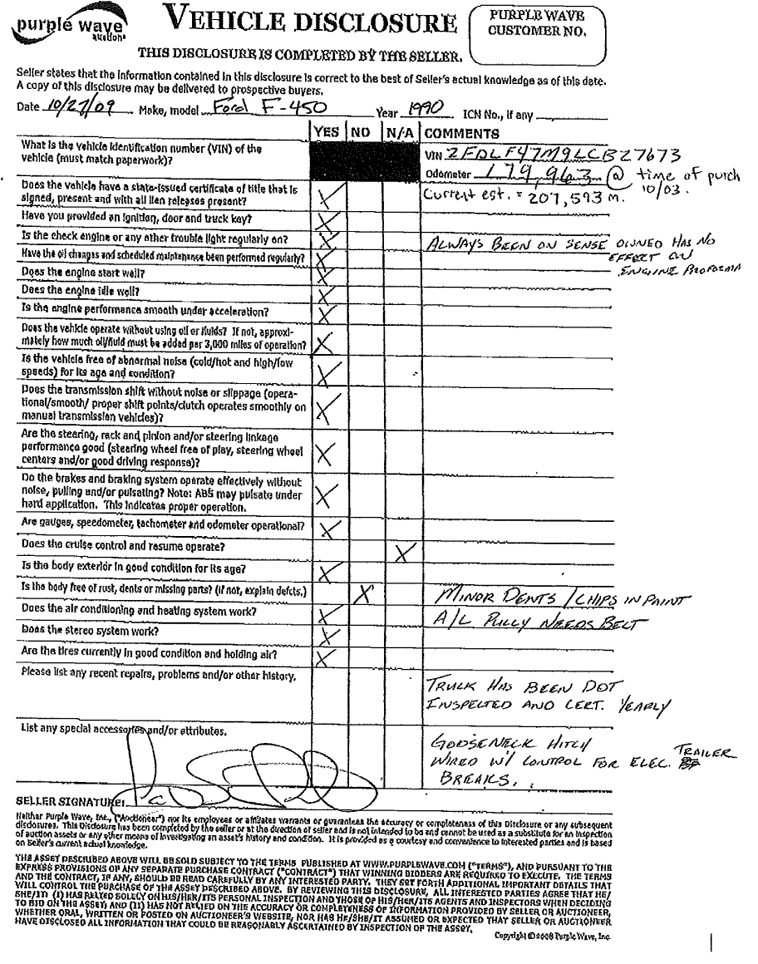 purple wave
auction
VEHICLE DISCLOSURE
PURPLE WAVE
CUSTOMER NO.
THIS DISCLOSURE IS COMPLETED BY THE SELLER.
Seller states that the information contained in this disclosure is correct to the best of Seller's actual knowledge as of this date.
A copy of this disclosure may be delivered to prospective buyers.
Date 10/27/09 Make, model Ford F-450 Year 1990 ICN No., if any
YES NO N/A COMMENTS
What is the vehicle identification number (VIN) of the
vehicle (must match paperwork)?
VIN 2FDLF47M9LCB27673
Odometer 179,963 @ time of purch
10/03.
Does the vehicle have a state-issued certificate of title that is
signed, present and with all lien releases present? X
Current est. = 207,593 m.
Have you provided an ignition, door and truck key? X
Is the check engine or any other trouble light regularly on? X ALWAYS BEEN ON SENSE OWNED HAS NO
EFFECT ON
ENGINE
Have the oil changes and scheduled maintenance been performed regularly? X
Does the engine start well? X
Does the engine idle well? X
Is the engine performance smooth under acceleration? X
Does the vehicle operate without using oil or fluids? If not, approxi-
mately how much oil/fluid must be added per 3,000 miles of operation? X
Is the vehicle free of abnormal noise (cold/hot and high/low
speeds) for its age and condition? X
Does the transmission shift without noise or slippage (opera-
tional/smooth/ proper shift points/clutch operates smoothly on
manual transmission vehicles)? X
Are the steering, rack and pinion and/or steering linkage
performance good (steering wheel free of play, steering wheel
centers and/or good driving response)? X
Do the brakes and braking system operate effectively without
noise, pulling and/or pulsating? Note: ABS may pulsate under
hard application. This indicates proper operation. X
Are gauges, speedometer, tachometer and odometer operational? X
Does the cruise control and resume operate? X
Is the body exterior in good condition for its age? X
Is the body free of rust, dents or missing parts? (if not, explain defcts.) X MINOR DENTS / CHIPS IN PAINT
Does the air conditioning and heating system work? X A/C PULLY NEEDS BELT
Does the stereo system work? X
Are the tires currently in good condition and holding air? X
Please list any recent repairs, problems and/or other history.
TRUCK HAS BEEN DOT
INSPECTED AND CERT. YEARLY
List any special accessories and/or attributes.
GOOSENECK HITCH
WIRED W/ CONTROL FOR ELEC. TRAILER
BREAKS.
SELLER SIGNATURE:
Neither Purple Wave, Inc., ("Auctioneer") nor its employees or affiliates warrants or guarantees the accuracy or completeness of this Disclosure or any subsequent
disclosures. This Disclosure has been completed by the seller or at the direction of seller and is not intended to be and cannot be used as a substitute for an inspection
of auction assets or any other means of investigating an asset's history and condition. It is provided as a courtesy and convenience to interested parties and is based
on Seller's current actual knowledge.
THE ASSET DESCRIBED ABOVE WILL BE SOLD SUBJECT TO THE TERMS PUBLISHED AT WWW.PURPLEWAVE.COM ("TERMS"), AND PURSUANT TO THE
EXPRESS PROVISIONS OF ANY SEPARATE PURCHASE CONTRACT ("CONTRACT") THAT WINNING BIDDERS ARE REQUIRED TO EXECUTE. THE TERMS
AND THE CONTRACT, IF ANY, SHOULD BE READ CAREFULLY BY ANY INTERESTED PARTY. THEY SET FORTH ADDITIONAL IMPORTANT DETAILS THAT
WILL CONTROL THE PURCHASE OF THE ASSET DESCRIBED ABOVE. BY REVIEWING THIS DISCLOSURE, ALL INTERESTED PARTIES AGREE THAT HE/
SHE/IT (I) HAS RELIED SOLELY ON HIS/HER/ITS PERSONAL INSPECTION AND THOSE OF HIS/HER/ITS AGENTS AND INSPECTORS WHEN DECIDING
TO BID ON THE ASSET; AND (II) HAS NOT RELIED ON THE ACCURACY OR COMPLETENESS OF INFORMATION PROVIDED BY SELLER OR AUCTIONEER,
WHETHER ORAL, WRITTEN OR POSTED ON AUCTIONEER'S WEBSITE, NOR HAS HE/SHE/IT ASSUMED OR EXPECTED THAT SELLER OR AUCTIONEER
HAVE DISCLOSED ALL INFORMATION THAT COULD BE REASONABLY ASCERTAINED BY INSPECTION OF THE ASSET.
Copyright © 2008 Purple Wave, Inc.